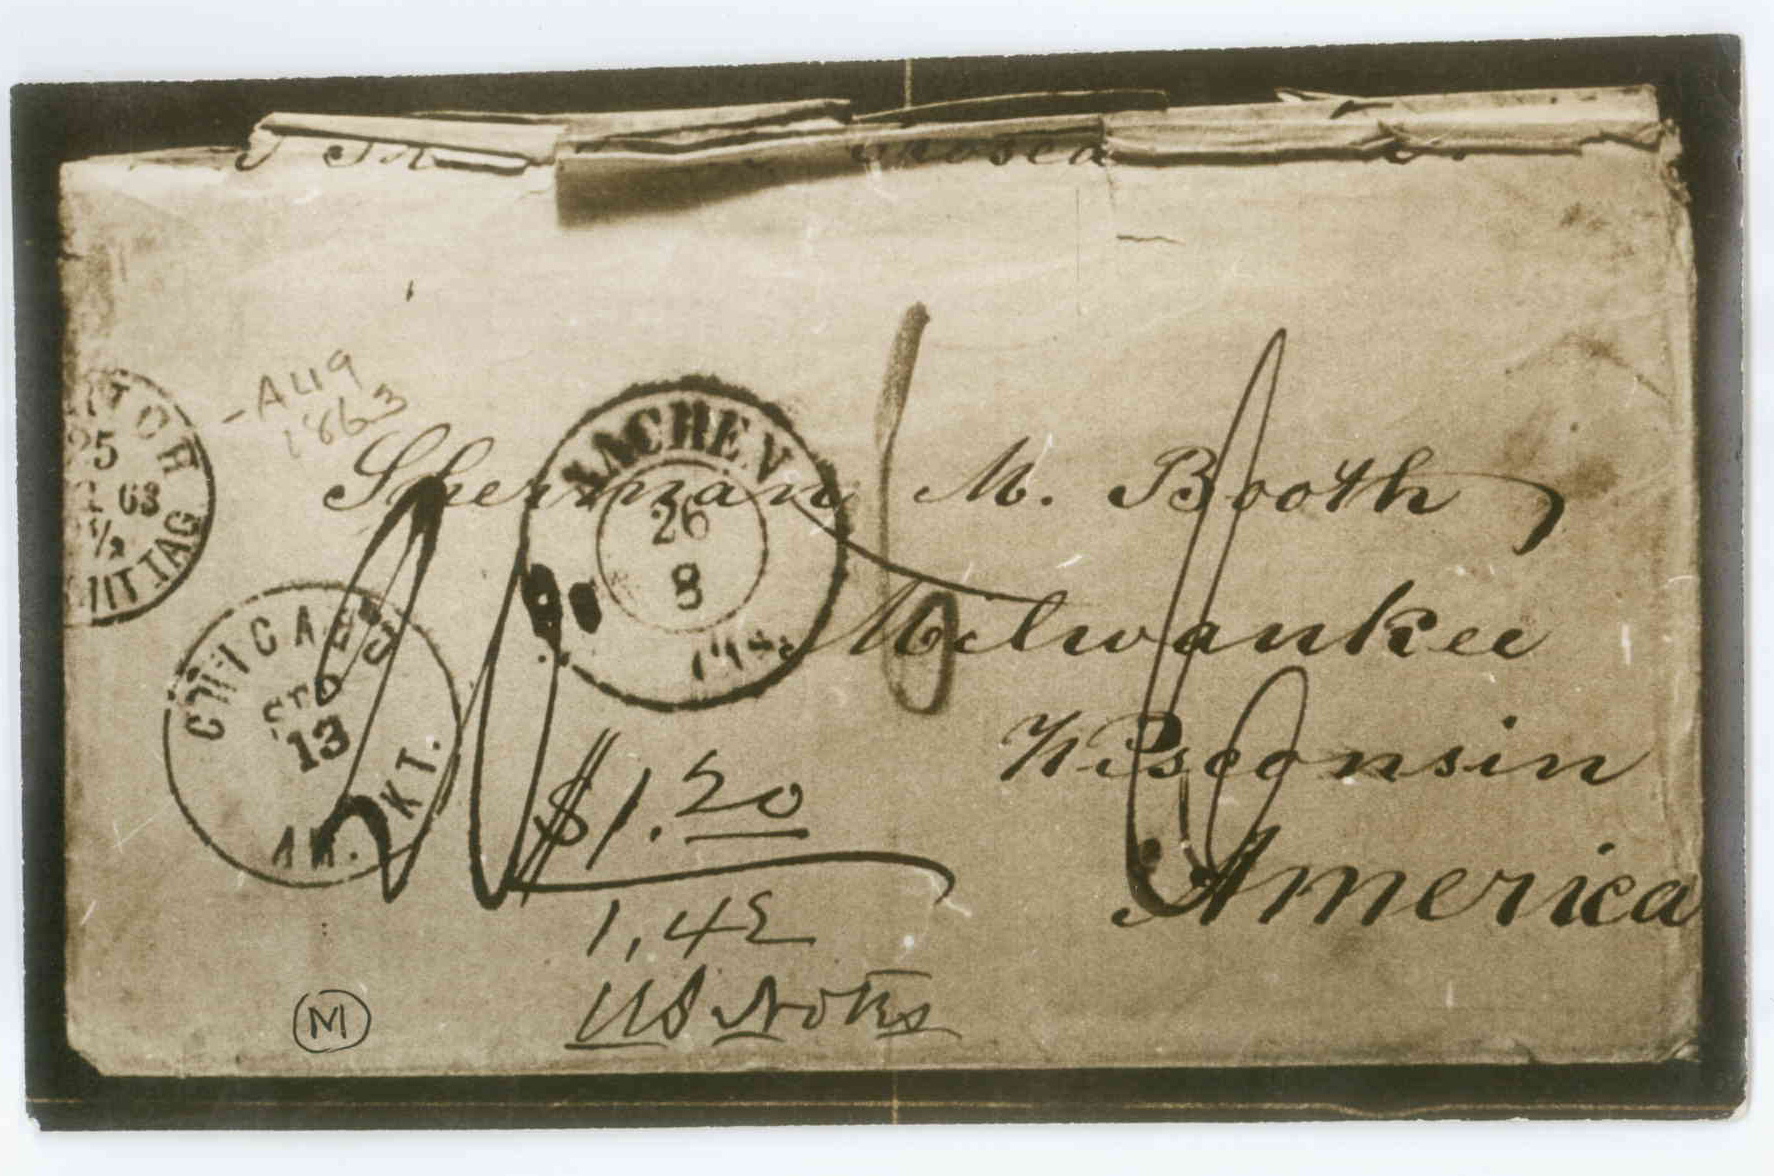 - AUG
1863
25
63
½
MITTAG
AACHEN
26
8
CHICAGO
SEP
13
AM. PKT.
Sherman M. Booth
Milwaukee
Wisconsin
America
$1.20
1,42
US Notes
M